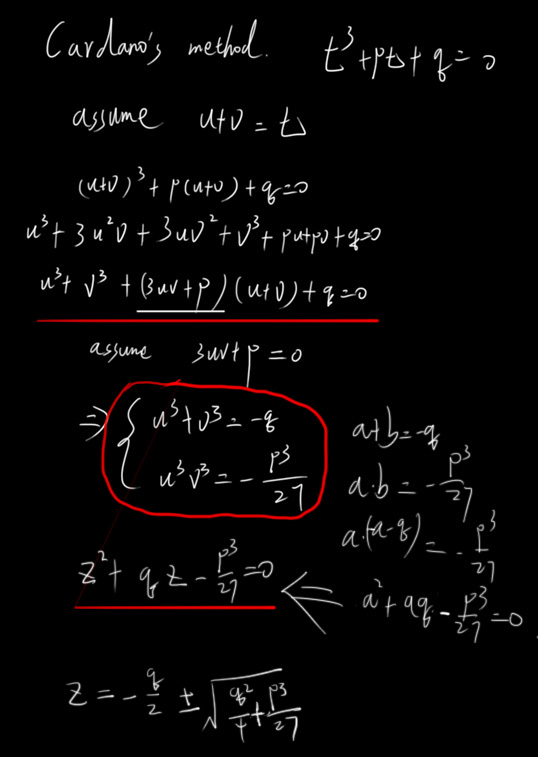 Cardano's method. t³+pt+q=0
assume u+v=t
(u+v)³+p(u+v)+q=0
u³+3u²v+3uv²+v³+pu+pv+q=0
u³+v³+(3uv+p)(u+v)+q=0
assume 3uv+p=0
⇒ { u³+v³=-q
u³v³=-p³/27
a+b=-q
a·b=-p³/27
a·(-a-q)=-p³/27
a²+aq-p³/27=0
z²+qz-p³/27=0
z=-q/2±√(q²/4+p³/27)